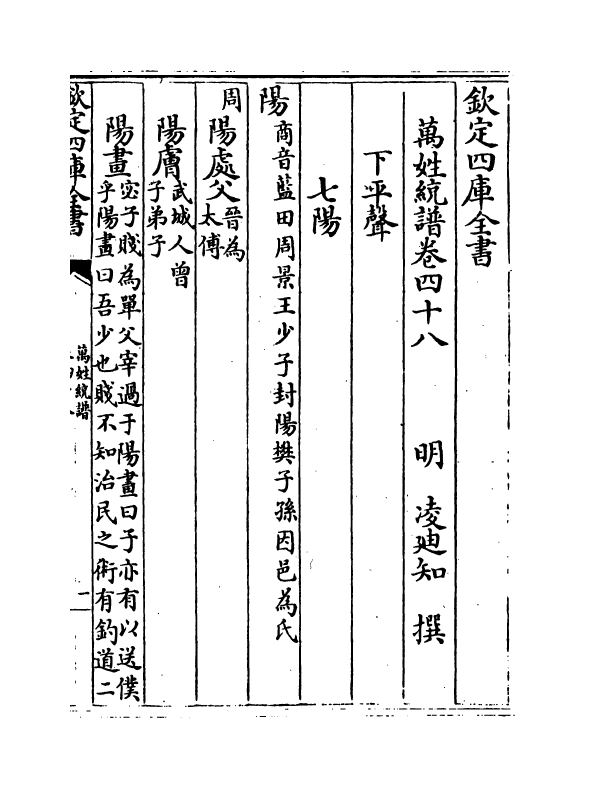 欽定四庫全書
萬姓統譜卷四十八 明 凌迪知 撰
下平聲
七陽
陽 商音藍田周景王少子封陽樊子孫因邑為氏
周
陽處父 晉為
太傅
陽膚 武城人曾
子弟子
陽晝 宓子賤為單父宰過于陽晝曰子亦有以送僕
乎陽晝曰吾少也賤不知治民之術有釣道二
欽定四庫全書
萬姓統譜
一